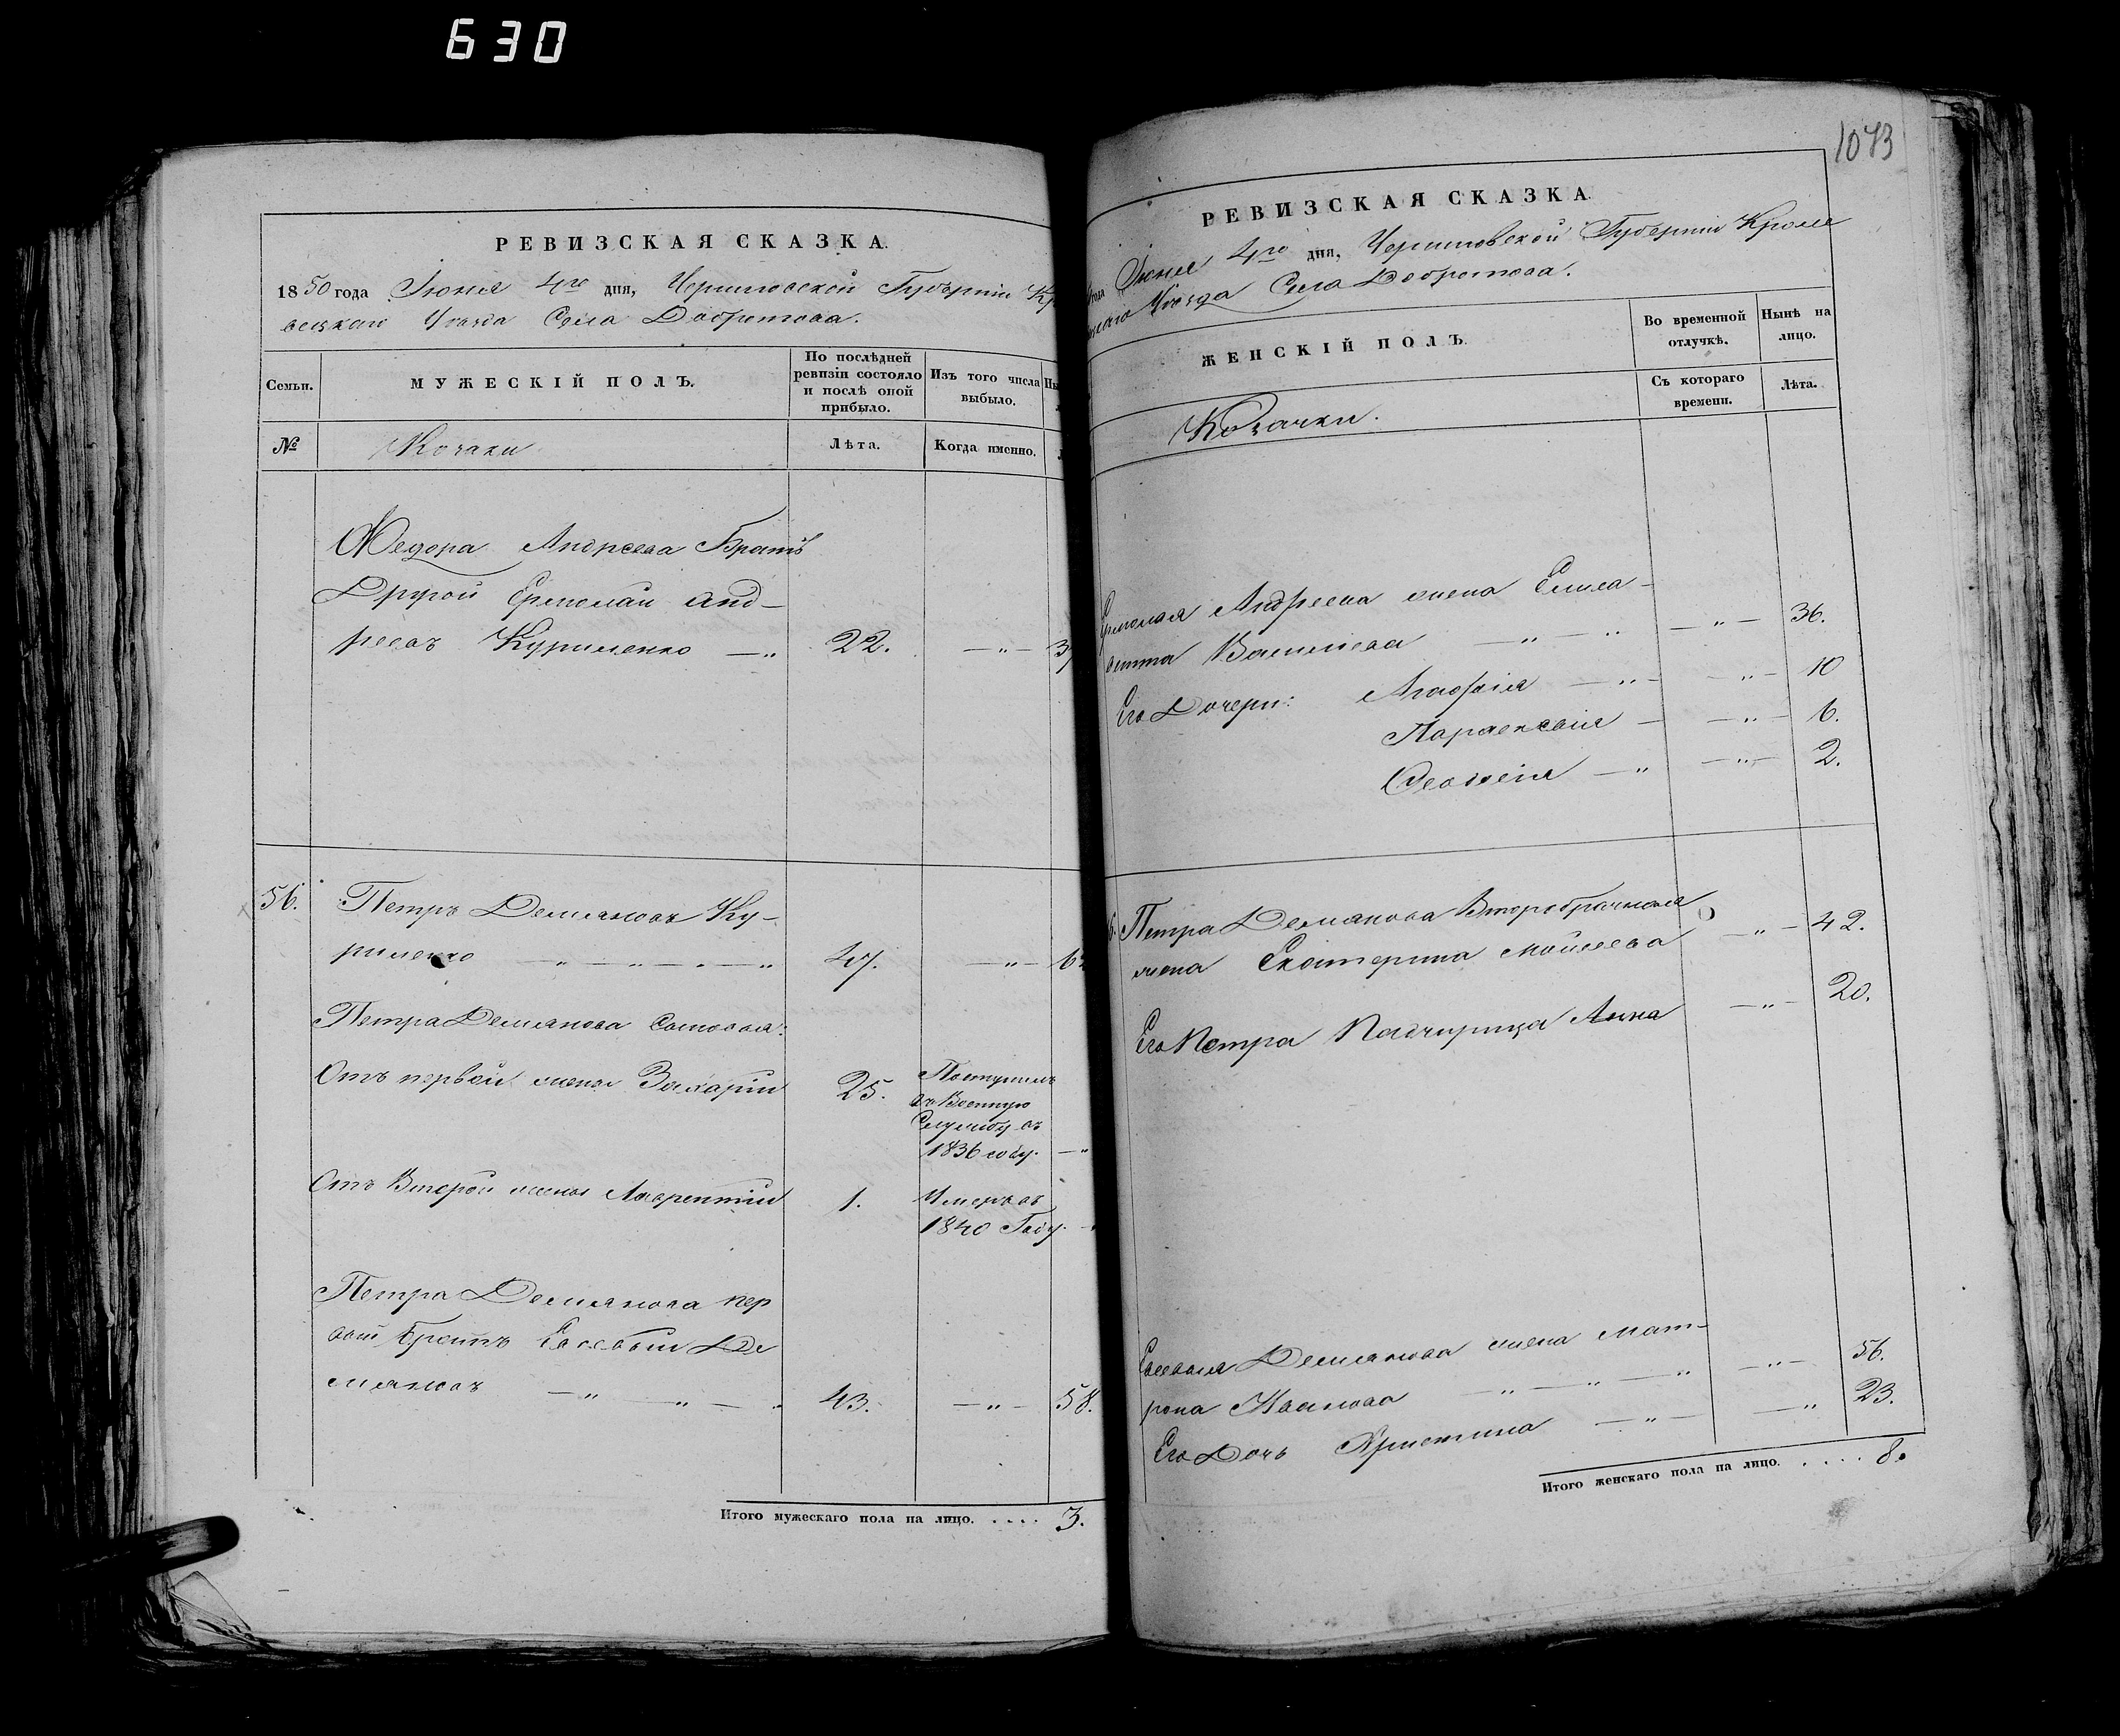 630
РЕВИЗСКАЯ СКАЗКА.
1850 года Іюня 4го дня, Черниговской Губерніи Кр
вецкаго Уѣзда Села Добротова.
Семьи.
МУЖЕСКІЙ ПОЛЪ.
По послѣдней
ревизіи состояло
и послѣ оной
прибыло.
Изъ того числа
выбыло.
№
Козаки
Лѣта.
Когда именно.
Федора Андреева Братъ
Другой Ермолай Анд-
реевъ Куриленко 22.
56. Петръ Демяновъ Ку-
риленко 47.
Петра Демянова сыновья:
Отъ первой жены Захарій 25. Поступилъ
въ Военную
Службу въ
1836 году.
Отъ Второй жены Лаврентій 1. Умеръ въ
1840 Году.
Петра Демянова пер
вой братъ Евсевій Де
мяновъ 43. 58.
Итого мужескаго пола на лицо. .... 3.
1073
РЕВИЗСКАЯ СКАЗКА.
года Іюня 4го дня, Черниговской Губерніи Кроле
Уѣзда Села Добротова.
ЖЕНСКІЙ ПОЛЪ.
Во временной
отлучкѣ.
Нынѣ на
лицо.
Съ котораго
времени.
Лѣта.
Козачки.
Ермолая Андреева жена Елиса-
вета 36.
Его Дочери: Агафія 10
Параскевія 6.
2.
Петра Демянова Второбрачная
жена Екатерина Мойсеева 42.
Его Петра Падчирица Анна 20.
Евсевія Демянова жена Мат-
рона Иванова 56.
Его Дочь Христина 23.
Итого женскаго пола на лицо. .... 8.